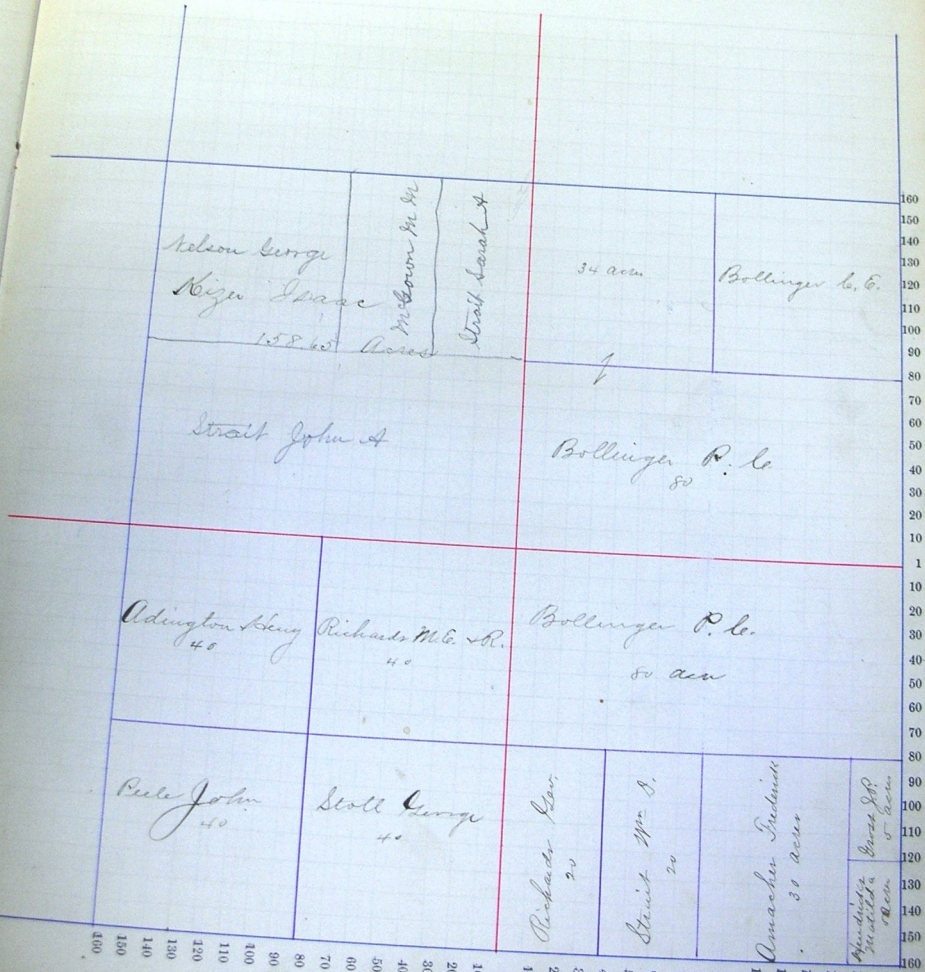 Nelson George
Kizer Isaac
158.65 Acres
McGown M M
Strait Sarah A
34 acres
Bollinger C. E.
Strait John A
Bollinger P. C.
80
Adington Henry
40
Richards M.E. & R.
40
Bollinger P. C.
80 acres
Peele John
40
Stoll George
40
Richards Geo.
20
Strait Wm D.
20
Amacher Frederick
30 acres
Gross J.P.
5 acres
Hendricks
Matilda
5 acres
160
150
140
130
120
110
100
90
80
70
60
50
40
30
20
10
1
10
20
30
40
50
60
70
80
90
100
110
120
130
140
150
160
160 150 140 130 120 110 100 90 80 70 60 50 40 30 20 10 1